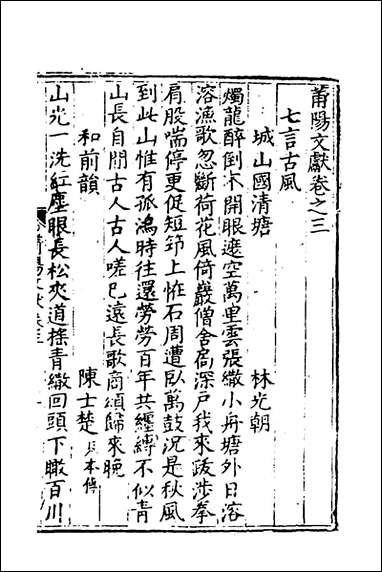 莆陽文獻卷之三
七言古風
城山國清塘 林光朝
燭龍醉倒不開眼遮空萬里雲張繖小舟塘外日溶
溶漁歌忽斷荷花風倚巖僧舍扃深戶我來跋涉拳
肩股喘停更促短筇上恠石周遭臥萬鼓況是秋風
到此山惟有孤鴻時往還勞勞百年共纏縛不似青
山長自閒古人古人嗟已遠長歌商頌歸來晚
和前韻 陳士楚見本傳
山光一洗紅塵眼長松夾道搽青繖回頭下瞰百川